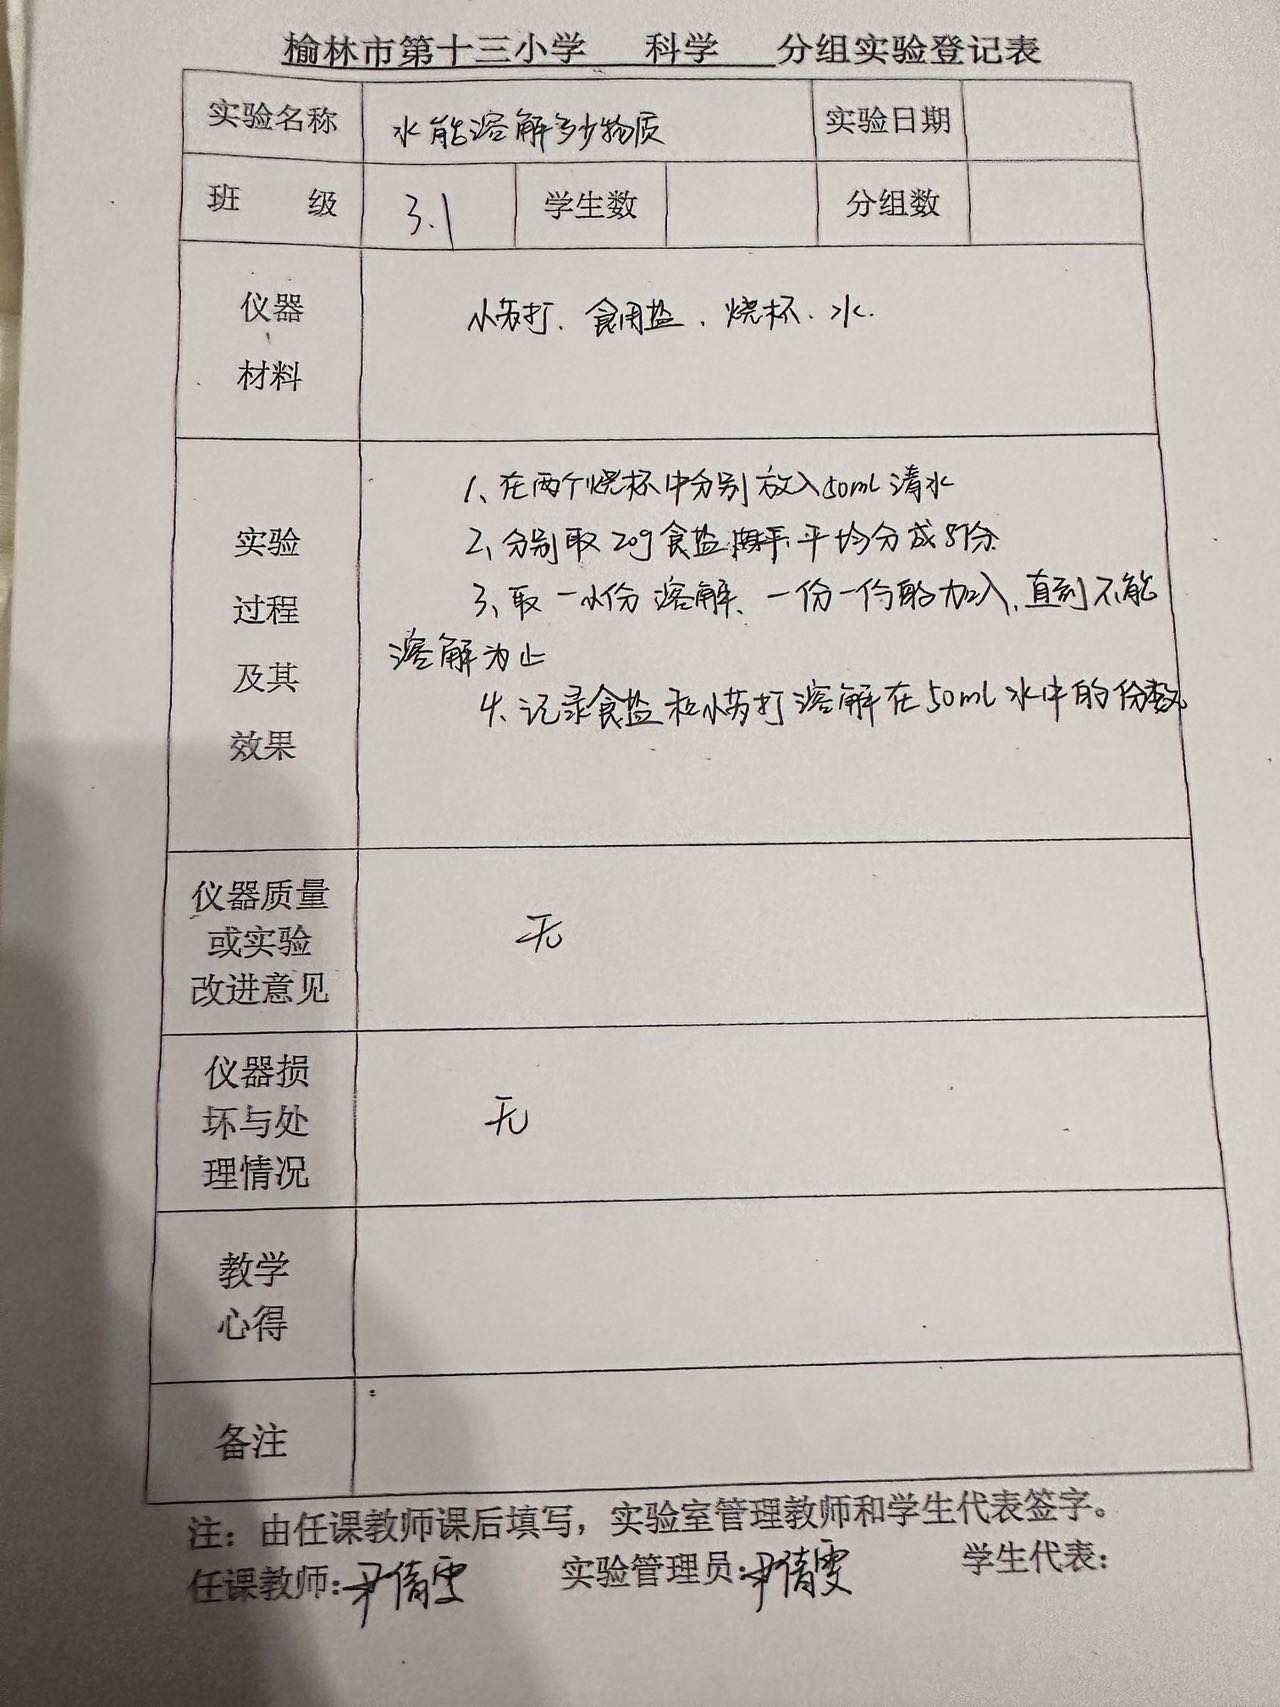 榆林市第十三小学 科学 分组实验登记表
实验名称 水能溶解多少物质 实验日期
班 级 3.1 学生数 分组数
仪器
材料
小苏打、食用盐、烧杯、水.
实验
过程
及其
效果
1、在两个烧杯中分别放入50mL清水
2、分别取20g食盐 平均分成8份
3、取一小份溶解、一份一份的加入,直到不能
溶解为止
4、记录食盐和小苏打溶解在50mL水中的份数。
仪器质量
或实验
改进意见
无
仪器损
坏与处
理情况
无
教学
心得
备注
注：由任课教师课后填写，实验室管理教师和学生代表签字。
任课教师:尹倩雯 实验管理员:尹倩雯 学生代表: